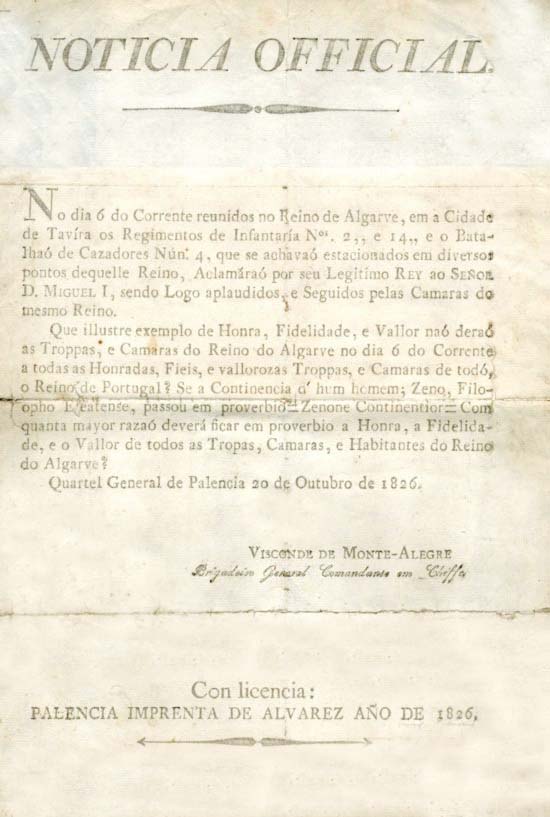 NOTICIA OFFICIAL.
No dia 6 do Corrente reunidos no Reino de Algarve, em a Cidade
de Tavíra os Regimentos de Infantaría Nos. 2,, e 14,, e o Bata-
lhaó de Cazadores Nún. 4, que se achavaó estacionados em diversos
pontos dequelle Reino, Aclamáraó por seu Legitimo REY ao SEÑOR
D. MIGUEL I, sendo Logo aplaudidos, e Seguidos pelas Camaras do
mesmo Reino.
Que illustre exemplo de Honra, Fidelidade, e Vallor naó deraó
as Troppas, e Camaras do Reino do Algarve no dia 6 do Corrente
a todas as Honradas, Fieis, e vallorozas Troppas, e Camaras de todó,
o Reino de Portugal? Se a Continencia d' hum homem; Zeno, Filo-
opho Eleatense, passou em proverbio = Zenone Continentior = Com
quanta mayor razaó deverá ficar em proverbio a Honra, a Fidelida-
de, e o Vallor de todos as Tropas, Camaras, e Habitantes do Reino
do Algarve?
Quartel General de Palencia 20 de Outubro de 1826.
VISCONDE DE MONTE-ALEGRE
Brigadeiro General Comandante em Cheffe
Con licencia:
PALENCIA IMPRENTA DE ALVAREZ AÑO DE 1826.